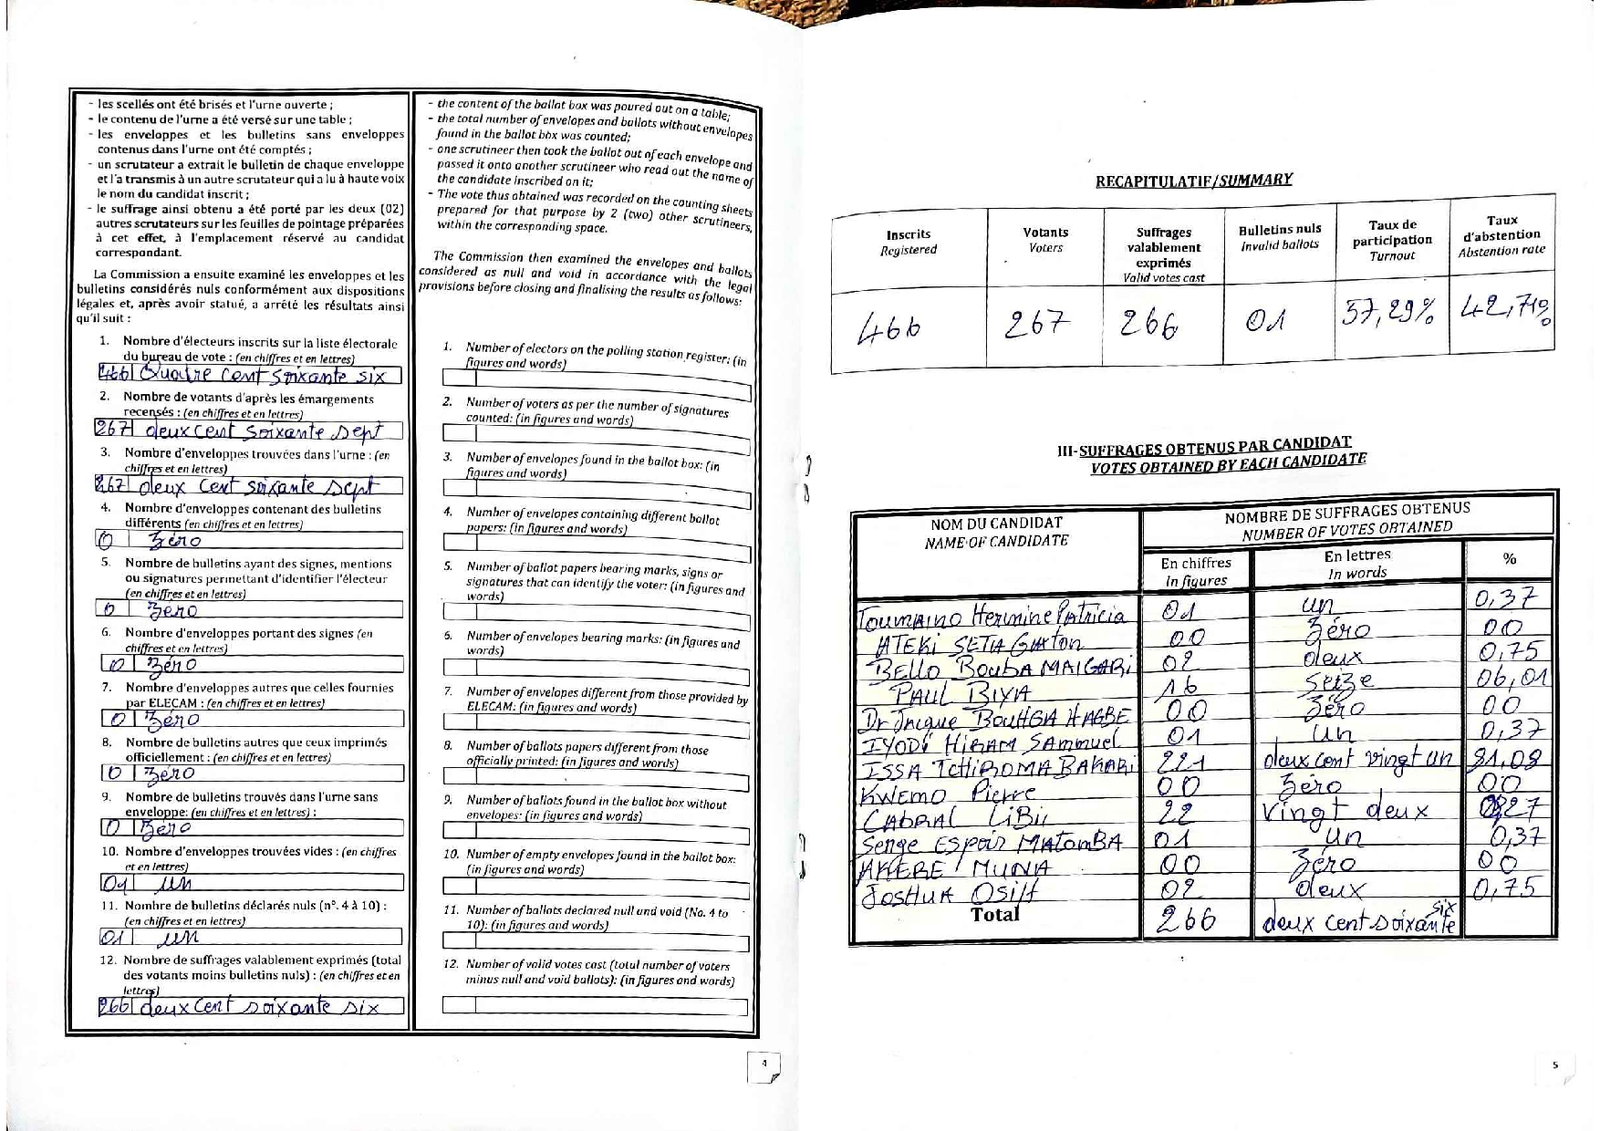 - les scellés ont été brisés et l'urne ouverte ;
- le contenu de l'urne a été versé sur une table ;
- les enveloppes et les bulletins sans enveloppes
contenus dans l'urne ont été comptés ;
- un scrutateur a extrait le bulletin de chaque enveloppe
et l'a transmis à un autre scrutateur qui a lu à haute voix
le nom du candidat inscrit ;
- le suffrage ainsi obtenu a été porté par les deux (02)
autres scrutateurs sur les feuilles de pointage préparées
à cet effet, à l'emplacement réservé au candidat
correspondant.
La Commission a ensuite examiné les enveloppes et les
bulletins considérés nuls conformément aux dispositions
légales et, après avoir statué, a arrêté les résultats ainsi
qu'il suit :
1. Nombre d'électeurs inscrits sur la liste électorale
du bureau de vote : (en chiffres et en lettres)
466 Quatre cent soixante six
2. Nombre de votants d'après les émargements
recensés : (en chiffres et en lettres)
267 deux cent soixante sept
3. Nombre d'enveloppes trouvées dans l'urne : (en
chiffres et en lettres)
267 deux cent soixante sept
4. Nombre d'enveloppes contenant des bulletins
différents (en chiffres et en lettres)
0 Zéro
5. Nombre de bulletins ayant des signes, mentions
ou signatures permettant d'identifier l'électeur
(en chiffres et en lettres)
0 Zéro
6. Nombre d'enveloppes portant des signes (en
chiffres et en lettres)
0 Zéro
7. Nombre d'enveloppes autres que celles fournies
par ELECAM : (en chiffres et en lettres)
0 Zéro
8. Nombre de bulletins autres que ceux imprimés
officiellement : (en chiffres et en lettres)
0 Zéro
9. Nombre de bulletins trouvés dans l'urne sans
enveloppe: (en chiffres et en lettres) :
0 Zéro
10. Nombre d'enveloppes trouvées vides : (en chiffres
et en lettres)
01 un
11. Nombre de bulletins déclarés nuls (n°. 4 à 10) :
(en chiffres et en lettres)
01 un
12. Nombre de suffrages valablement exprimés (total
des votants moins bulletins nuls) : (en chiffres et en
lettres)
266 deux cent soixante six
- the content of the ballot box was poured out on a table;
- the total number of envelopes and ballots without envelopes
found in the ballot box was counted;
- one scrutineer then took the ballot out of each envelope and
passed it onto another scrutineer who read out the name of
the candidate inscribed on it;
- The vote thus obtained was recorded on the counting sheets
prepared for that purpose by 2 (two) other scrutineers,
within the corresponding space.
The Commission then examined the envelopes and ballots
considered as null and void in accordance with the legal
provisions before closing and finalising the results as follows:
1. Number of electors on the polling station register: (in
figures and words)
2. Number of voters as per the number of signatures
counted: (in figures and words)
3. Number of envelopes found in the ballot box: (in
figures and words)
4. Number of envelopes containing different ballot
papers: (in figures and words)
5. Number of ballot papers bearing marks, signs or
signatures that can identify the voter: (in figures and
words)
6. Number of envelopes bearing marks: (in figures and
words)
7. Number of envelopes different from those provided by
ELECAM: (in figures and words)
8. Number of ballots papers different from those
officially printed: (in figures and words)
9. Number of ballots found in the ballot box without
envelopes: (in figures and words)
10. Number of empty envelopes found in the ballot box:
(in figures and words)
11. Number of ballots declared null and void (No. 4 to
10): (in figures and words)
12. Number of valid votes cast (total number of voters
minus null and void ballots): (in figures and words)
4
RECAPITULATIF/SUMMARY
Inscrits Registered
Votants Voters
Suffrages valablement exprimés Valid votes cast
Bulletins nuls Invalid ballots
Taux de participation Turnout
Taux d'abstention Abstention rate
466 267 266 01 57,29% 42,71%
III-SUFFRAGES OBTENUS PAR CANDIDAT
VOTES OBTAINED BY EACH CANDIDATE
NOM DU CANDIDAT
NAME OF CANDIDATE
NOMBRE DE SUFFRAGES OBTENUS
NUMBER OF VOTES OBTAINED
En chiffres
In figures
En lettres
In words
%
Toumaino Hermine Patricia 01 un 0,37
ATEKI SETA Gaxton 00 Zéro 00
BELLO Bouba MAIGARI 02 deux 0,75
PAUL BIYA 16 Seize 06,01
Dr Jacque BOUHGA HAGBE 00 Zéro 00
IYODI HIRAM SAmmuel 01 Un 0,37
ISSA TCHIROMA BAKARI 221 deux cent vingt un 81,08
KWEMO Pierre 00 Zéro 00
CABRAL LIBII 22 Vingt deux
Senge Espoir MATOMBA 01 un 0,37
AKERE MUNA 00 Zéro 00
JOSHUA OSIH 02 deux 0,75
Total 266 deux cent soixante six
5